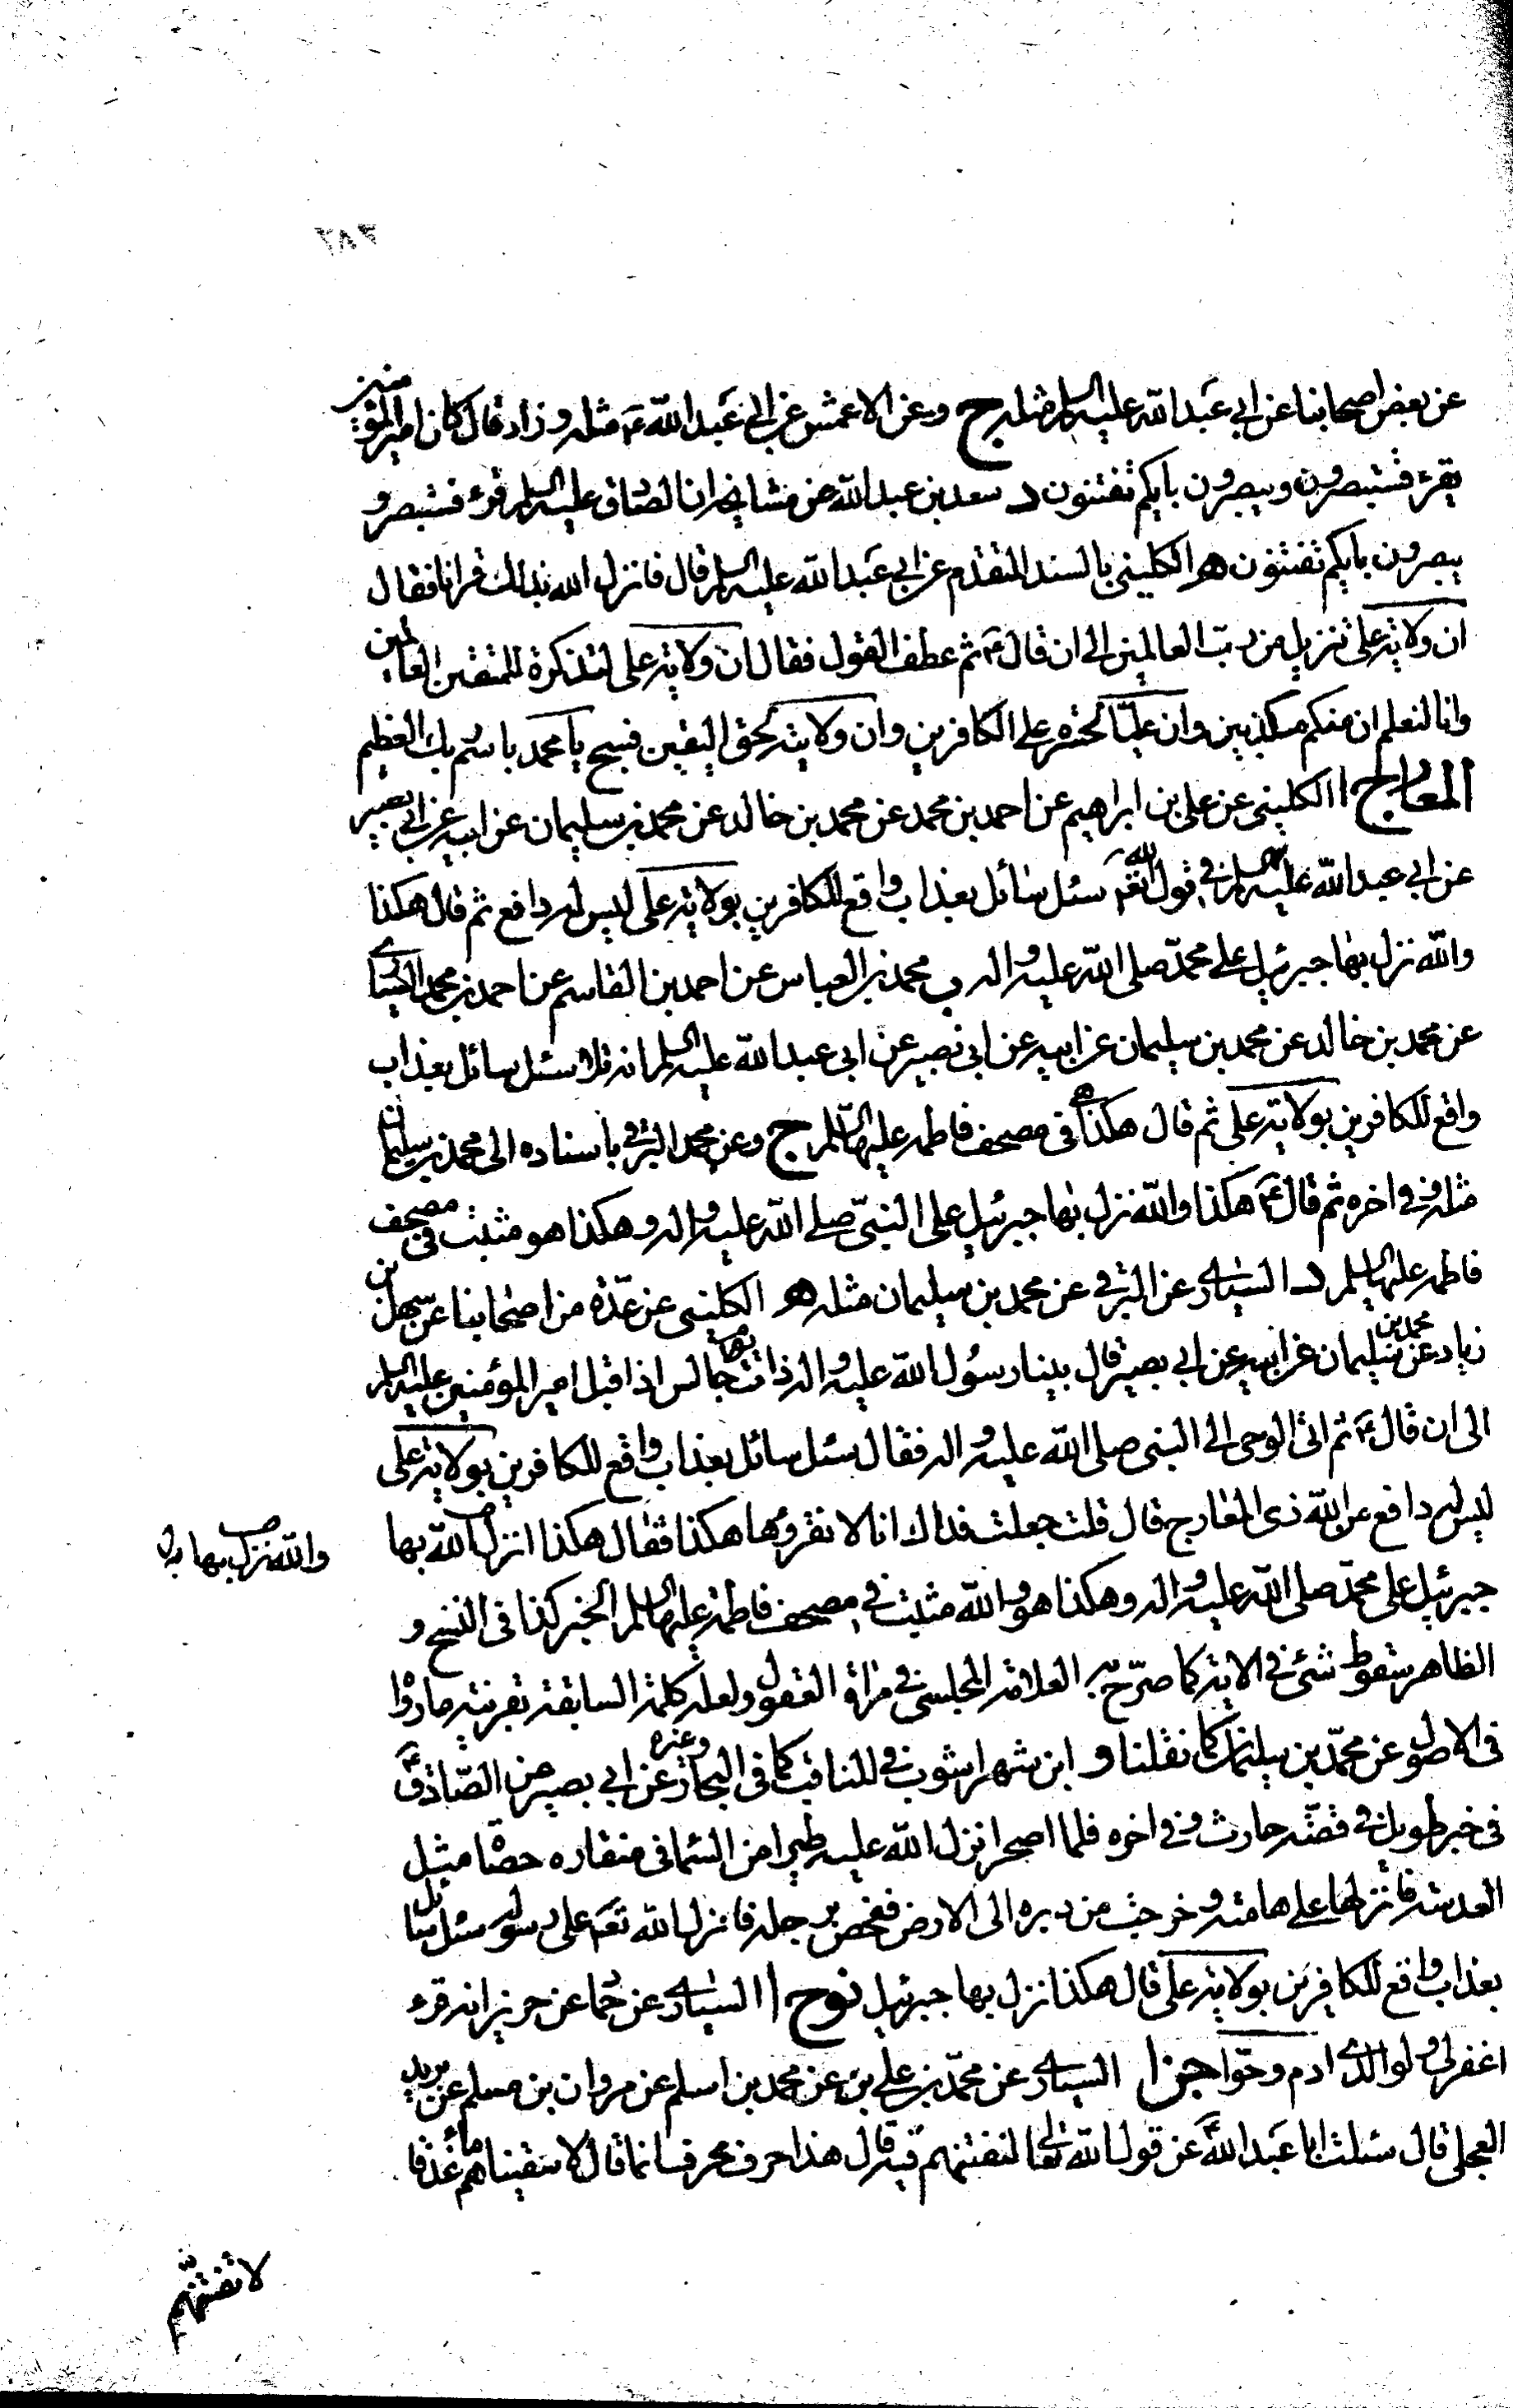 عن بعض اصحابنا عن ابى عبد الله عليه السلم مثله ج وعن الاعمش عن ابى عبد الله ع مثله وزاد قال كان امير المؤمنين
يقرء فستبصرون ويبصرون بايكم تفتنون د سعد بن عبد الله عن مشايخه ان الصادق عليه السلم قرء فستبصر و
يبصرون بايكم تفتنون ه الكلينى بالسند المتقدم عن ابى عبد الله عليه السلم قال فانزل الله بذلك قرانا فقال
ان ولاية على تنزيل من رب العالمين الى ان قال ع ثم عطف القول فقال ان ولاية على لتذكرة للمتقين العالمين
وانا لنعلم ان منكم مكذبين وان عليّا لحسرة على الكافرين وان ولايته لحق اليقين فسبح يا محمد باسم ربك العظيم
المعارج ا الكلينى عن على بن ابراهيم عن احمد بن محمد عن محمد بن خالد عن محمد بن سليمان عن ابيه عن ابى بصير
عن ابى عبد الله عليه السلم فى قول الله تعالى سئل سائل بعذاب واقع للكافرين بولاية على ليس له دافع ثم قال هكذا
والله نزل بها جبرئيل على محمّد صلى الله عليه واله ب محمد بن العباس عن احمد بن القاسم عن احمد بن محمد السيارى
عن محمد بن خالد عن محمد بن سليمان عن ابيه عن ابى بصير عن ابى عبد الله عليه السلم انه تلا سئل سائل بعذاب
واقع للكافرين بولاية على ثم قال هكذا هى فى مصحف فاطمه عليها السلم ج وعن محمد البرقى باسناده الى محمد بن سليمان
مثله وفى اخره ثم قال ع هكذا والله نزل بها جبرئيل على النبىّ صلى الله عليه واله وهكذا هو مثبت فى مصحف
فاطمه عليها السلم د السيارى عن البرقى عن محمد بن سليمان مثله ه الكلينى عن عدّة من اصحابنا عن سهل بن
زياد عن محمد بن سليمان عن ابيه عن ابى بصير قال بينا رسول الله عليه واله ذات يوم جالس اذ اقبل امير المؤمنين عليه السلم
الى ان قال ع ثم اتى الوحى الى النبى صلى الله عليه واله فقال سئل سائل بعذاب واقع للكافرين بولاية على
ليس له دافع من الله ذى المعارج قال قلت جعلت فداك انا لا نقرؤها هكذا فقال هكذا انزل الله بها
والله نزل بها
جبرئيل على محمّد صلى الله عليه واله وهكذا هو والله مثبت فى مصحف فاطمة عليها السلم الخبر كذا فى النسخ و
الظاهر سقوط شئ فى الاية كما صرّح به العلامة المجلسى فى مراة العقول ولعله كلمة السابقة بقرينة ما رووا
فى الاصول عن محمّد بن سليمان كما نقلنا و ابن شهراشوب فى المناقب كما فى البحار وغيره عن ابى بصير عن الصّادق ع
فى خبر طويل فى قصّة حارث وفى اخره فلما اصحر انزل الله عليه طيرا من السماء فى منقاره حصاة مثل
العدسة فانزلها على هامته وخرجت من دبره الى الارض ففحص برجله فانزل الله تعالى على رسوله سئل سائل
بعذاب واقع للكافرين بولاية على قال هكذا نزل بها جبرئيل نوح ا السيارى عن حماد عن حريز انه قرء
اغفر لى ولوالدى ادم وحوّا جن ا السيارى عن محمّد بن على عن محمد بن اسلم عن مروان بن مسلم عن بريد
العجلى قال سئلت ابا عبد الله ع عن قول الله تعالى لنفتنهم فيه قال هذا حرف محرف انما قال لاسقيناهم ماء غدقا
لا نفتنهم